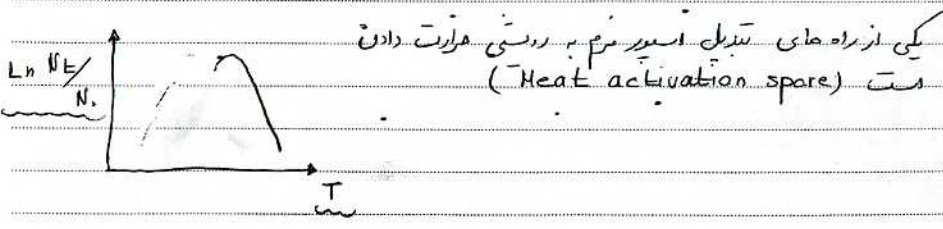 یکی از راه های تبدیل اسپور فرم به رویشی حرارت دادن
است (Heat activation spore)
Ln Nt/
N.
T